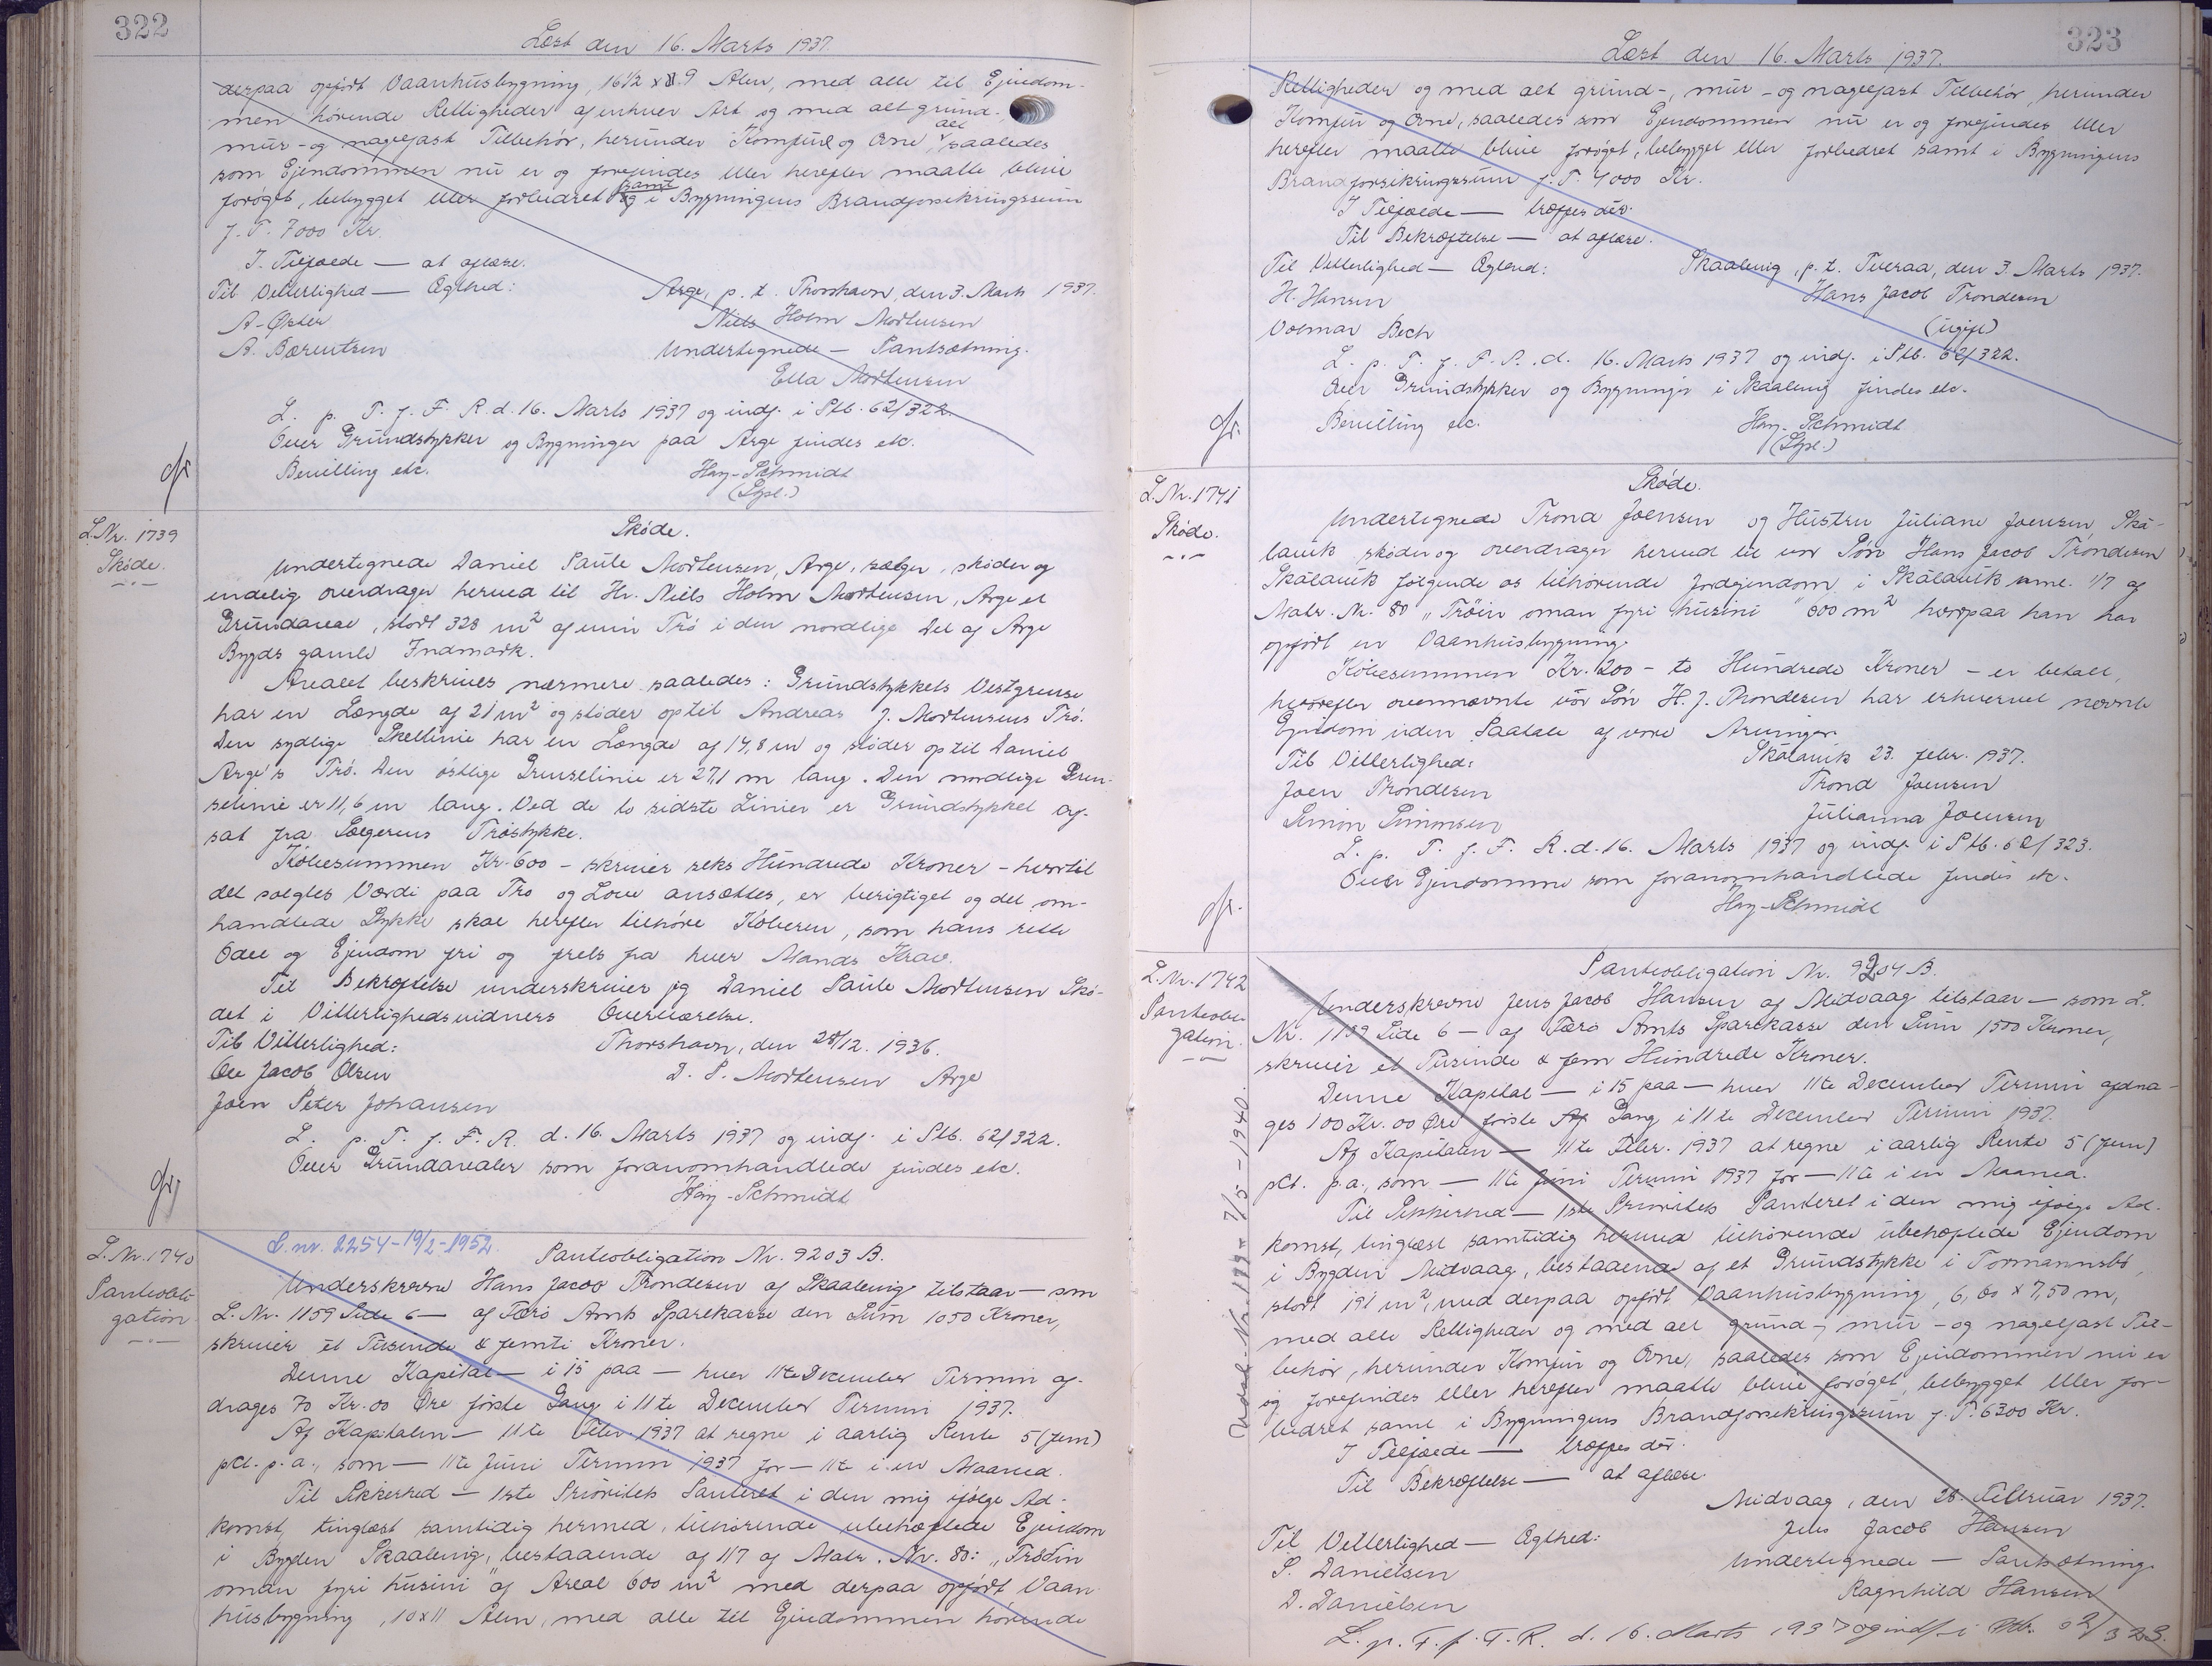 322
Læst den 16. Marts 1937.
derpaa opført Vaanhusbygning, 16½ x 8.9 Alen, med alle til Ejendom-
men hørende Rettigheder af enhver Art og med alt grund-,
mur- og nagelfast Tilbehør, herunder Komfur og Ovne, alt saaledes
som Ejendommen nu er og forefindes eller herefter maatte blive
forøget, bebygget eller forbedret samt i Bygningens Brandforsikringssum
f. T. 7000 Kr.
I Tilfælde — at aflæse.
Til Vitterlighed — Ægthed: Arge, p. t. Thorshavn, den 3. Marts 1937.
A. Øster Niels Holm Mortensen
A. Bærentsen Undertegnede — Pantsætning.
Ella Mortensen
L. p. T. f. F. R. d. 16. Marts 1937 og indf. i Ptb. 62/322.
Over Grundstykker og Bygninger paa Arge findes etc.
Bevilling etc. Hay-Schmidt
(Stpl.)
L. Nr. 1739
Skøde.
Skøde.
Undertegnede Daniel Paule Mortensen, Arge, sælger, skøder og
endelig overdrager herved til Hr. Niels Holm Mortensen, Arge et
Grundareal, stort 328 m² af min Trø i den nordlige Del af Arge
Bygds gamle Indmark.
Arealet beskrives nærmere saaledes: Grundstykkets Vestgrense
har en Længde af 21 m² og støder op til Andreas J. Mortensens Trø.
Den sydlige Skellinie har en Længde af 14,8 m og støder op til Daniel
Arge's Trø. Den østlige Grenselinie er 27,1 m lang. Den nordlige Gren-
selinie er 11,6 m lang. Ved de to sidste Linier er Grundstykket af-
sat fra Sælgerens Trøstykke.
Købesummen Kr. 600 - skriver seks Hundrede Kroner - hvortil
det solgtes Værdi paa Tro og Love ansættes, er berigtiget og det om-
handlede Stykke skal herefter tilhøre Køberen, som hans rette
Odel og Ejendom fri og frels fra hver Mands Krav.
Til Bekræftelse underskriver jeg Daniel Paule Mortensen Skø-
det i Vitterlighedsvidners Overværelse.
Til Vitterlighed: Thorshavn, den 28/12. 1936.
Ole Jacob Olsen D. P. Mortensen Arge
Joen Peter Johansen
L. p. T. f. F. R. d. 16. Marts 1937 og indf. i Ptb. 62/322.
Over Grundarealer som foranomhandlede findes etc.
Hay-Schmidt
L. Nr. 1740
Panteobli-
gation
L. nr. 2254 - 19/2 - 1952.
Panteobligation Nr. 9203 B.
Underskrevne Hans Jacob Trondesen af Skaalevig tilstaar — som
L. Nr. 1159 Side 6 — af Færø Amts Sparekasse den Sum 1050 Kroner,
skriver et Tusinde & femti Kroner.
Denne Kapital — i 15 paa — hver 11te December Termin af-
drages 70 Kr. 00 Øre første Gang i 11te December Termin 1937.
Af Kapitalen — 11te Febr. 1937 at regne i aarlig Rente 5 (fem)
pCt. p. a., som — 11te Juni Termin 1937 for — 11te i en Maaned.
Til Sikkerhed — 1ste Prioritets Panteret i den mig ifølge Ad-
komst, tinglæst samtidig hermed, tilhørende ubehæftede Ejendom
i Bygden Skaalevig, bestaaende af 1/7 af Matr. Nr. 80: „Trøðin
oman fyri húsini" af Areal 600 m² med derpaa opført Vaan-
husbygning, 10x11 Alen, med alle til Ejendommen hørende
323
Læst den 16. Marts 1937.
Rettigheder og med alt grund-, mur- og nagelfast Tilbehør, herunder
Komfur og Ovne, saaledes som Ejendommen nu er og forefindes eller
herefter maatte blive forøget, bebygget eller forbedret samt i Bygningens
Brandforsikringssum f. T. 4000 Kr.
I Tilfælde — træffes dér.
Til Bekræftelse — at aflæse.
Til Vitterlighed — Ægthed: Skaalevig, p. t. Tveraa, den 3. Marts 1937.
H. Hansen Hans Jacob Trondesen
Volmar Bech (ugift)
L. p. T. f. F. R. d. 16. Marts 1937 og indf. i Ptb. 62/322.
Over Grundstykker og Bygninger i Skaalevig findes etc.
Bevilling etc. Hay-Schmidt
(Stpl.)
L. Nr. 1741
Skøde.
Skøde.
Undertegnede Trond Joensen og Hustru Juliane Joensen, Ská-
lavík skøder og overdrager herved til vor Søn Hans Jacob Trøndesen
Skálavík følgende os tilhørende Jordejendom i Skálavík nml. 1/7 af
Matr. Nr. 80 „Trøin oman fyri húsini" 600 m² hvorpaa han har
opført en Vaanhusbygning.
Købesummen Kr. 200 - to Hundrede Kroner - er betalt,
hvorefter ovennævnte vor Søn H. J. Thondesen har erhvervet nævnte
Ejendom uden Paatale af vore Arvinger.
Til Vitterlighed: Skálavík 23. febr. 1937.
Joen Trondesen Trond Joensen
Simon Simonsen Julianna Joensen
L. p. T. f. F. R. d. 16. Marts 1937 og indf. i Ptb. 62/323.
Over Ejendomme som foranomhandlede findes etc.
Hay-Schmidt
L. Nr. 1742
Panteobli-
gation.
Panteobligation Nr. 9204 B.
Underskrevne Jens Jacob Hansen af Midvaag tilstaar — som L.
Nr. 1159 Side 6 — af Færø Amts Sparekasse den Sum 1500 Kroner,
skriver et Tusinde & fem Hundrede Kroner.
Denne Kapital — i 15 paa — hver 11te December Termin afdra-
ges 100 Kr. 00 Øre første Gang i 11te December Termin 1937.
Af Kapitalen — 11te Febr. 1937 at regne i aarlig Rente 5 (fem)
pCt. p. a., som — 11te Juni Termin 1937 for — 11te i en Maaned.
Til Sikkerhed — 1ste Prioritets Panteret i den mig ifølge Ad-
komst, tinglæst samtidig hermed tilhørende ubehæftede Ejendom
i Bygden Midvaag, bestaaende af et Grundstykke i Tormannsbø,
stort 191 m², med derpaa opført Vaanhusbygning, 6,80 x 7,50 m,
med alle Rettigheder og med alt grund-, mur- og nagelfast Til-
behør, herunder Komfur og Ovne, saaledes som Ejendommen nu er
og forefindes eller herefter maatte blive forøget, bebygget eller for-
bedret samt i Bygningens Brandforsikringssum f. T. 6300 Kr.
I Tilfælde — træffes dér.
Til Bekræftelse — at aflæse.
Midvaag, den 28. Februar 1937.
Til Vitterlighed — Ægthed: Jens Jacob Hansen
S. Danielsen Undertegnede — Pantsætning
D. Danielsen Ragnhild Hansen
L. p. T. f. F. R. d. 16. Marts 1937 og indf. i Ptb. 62/323.
7/5 - 1940.